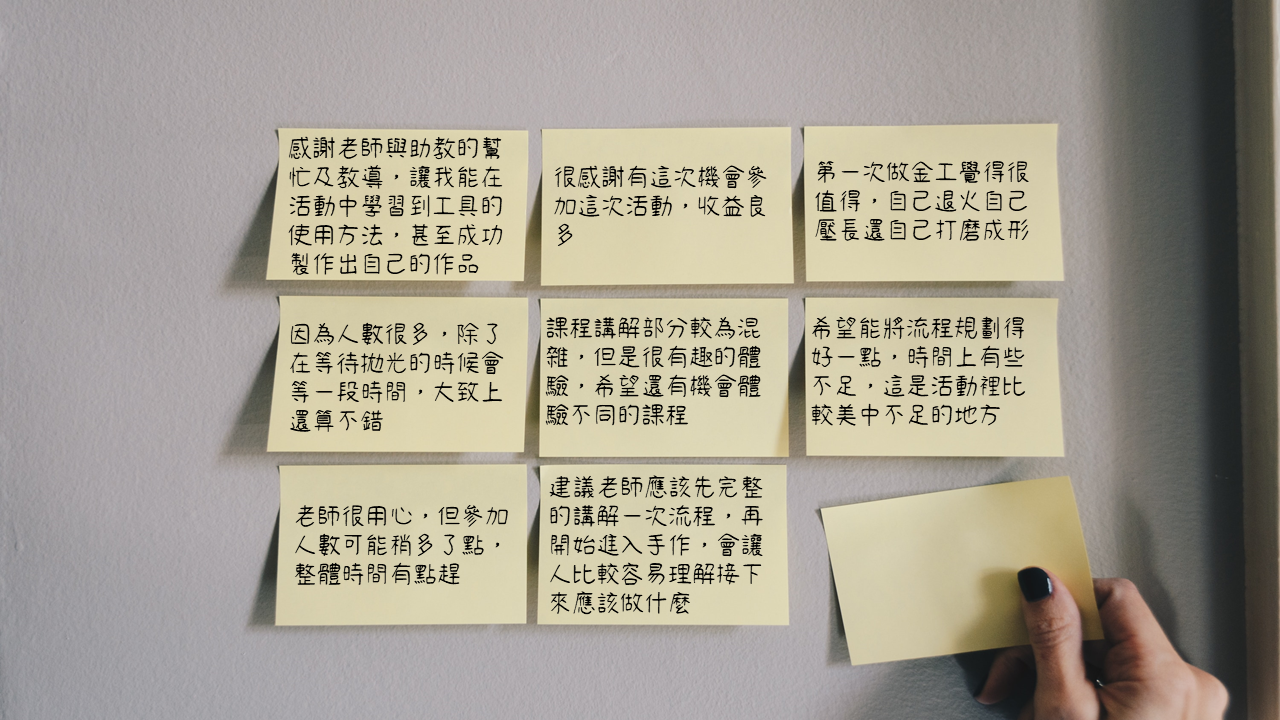 感謝老師與助教的幫
忙及教導，讓我能在
活動中學習到工具的
使用方法，甚至成功
製作出自己的作品
很感謝有這次機會參
加這次活動，收益良
多
第一次做金工覺得很
值得，自己退火自己
壓長還自己打磨成形
因為人數很多，除了
在等待拋光的時候會
等一段時間，大致上
還算不錯
課程講解部分較為混
雜，但是很有趣的體
驗，希望還有機會體
驗不同的課程
希望能將流程規劃得
好一點，時間上有些
不足，這是活動裡比
較美中不足的地方
老師很用心，但參加
人數可能稍多了點，
整體時間有點趕
建議老師應該先完整
的講解一次流程，再
開始進入手作，會讓
人比較容易理解接下
來應該做什麼